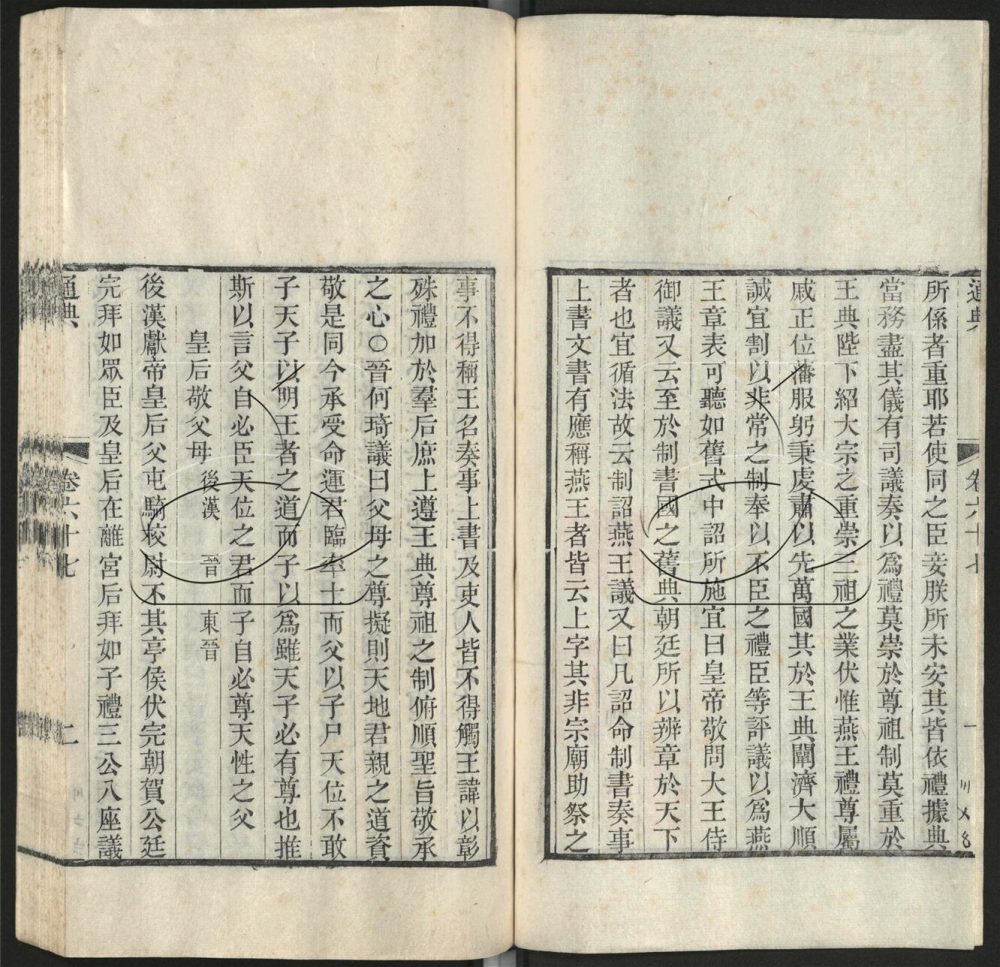 通典
卷六十七
一
所係者重耶若使同之臣妾朕所未安其皆依禮據典
當務盡其儀有司議奏以為禮莫崇於尊祖制莫重於
王典陛下紹大宗之重崇三祖之業伏惟燕王禮尊屬
戚正位藩服躬秉虔肅以先萬國其於王典闡濟大順
誠宜割以非常之制奉以不臣之禮臣等評議以為燕
王章表可聽如舊式中詔所施宜曰皇帝敬問大王侍
御議又云至於制書國之舊典朝廷所以辨章於天下
者也宜循法故云制詔燕王議又曰凡詔命制書奏事
上書文書有應稱燕王者皆云上字其非宗廟助祭之
事不得稱王名奏事上書及吏人皆不得觸王諱以彰
殊禮加於羣后庶上遵王典尊祖之制俯順聖旨敬承
之心〇晉何琦議曰父母之尊擬則天地君親之道資
敬是同今承受命運君臨率土而父以子尸天位不敢
子天子以明王者之道而子以為雖天子必有尊也推
斯以言父自必臣天位之君而子自必尊天性之父
皇后敬父母 後漢 晉 東晉
後漢獻帝皇后父屯騎校尉不其亭侯伏完朝賀公廷
完拜如眾臣及皇后在離宮后拜如子禮三公八座議
通典
卷六十七
二